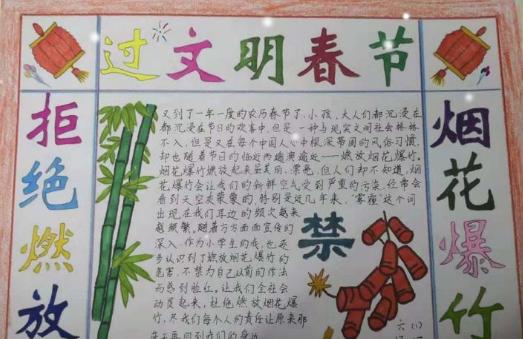 过文明春节
拒绝燃放
烟花爆竹
又到了一年一度的农历春节了,小孩、大人们都沉浸在
都沉浸在节日的欢喜中,但是一种与现实文明社会格格
不入,但是又在每个中国人心中根深蒂固的风俗习惯,
却也随着节日的临近而越演越近——燃放烟花,爆竹。
烟花爆竹燃放起来虽美丽、漂亮,但人们却不知道,烟
花爆竹会让我们的新鲜空气受到严重的污染,经常会
看到天空灰蒙蒙的,特别是近几年来,"雾霾"这个词
出现在我们耳边的频次越来
越频繁,随着方方面面宣传的
深入,作为小学生的我,也逐
步认识到了燃放烟花、爆竹的
危害,不禁为自己以前的作法
而感到脸红。让我们全社会
动员起来,杜绝燃放烟花爆
竹,尽我们每个人的责任让原来那
再回到我们的身边
禁
六(1)